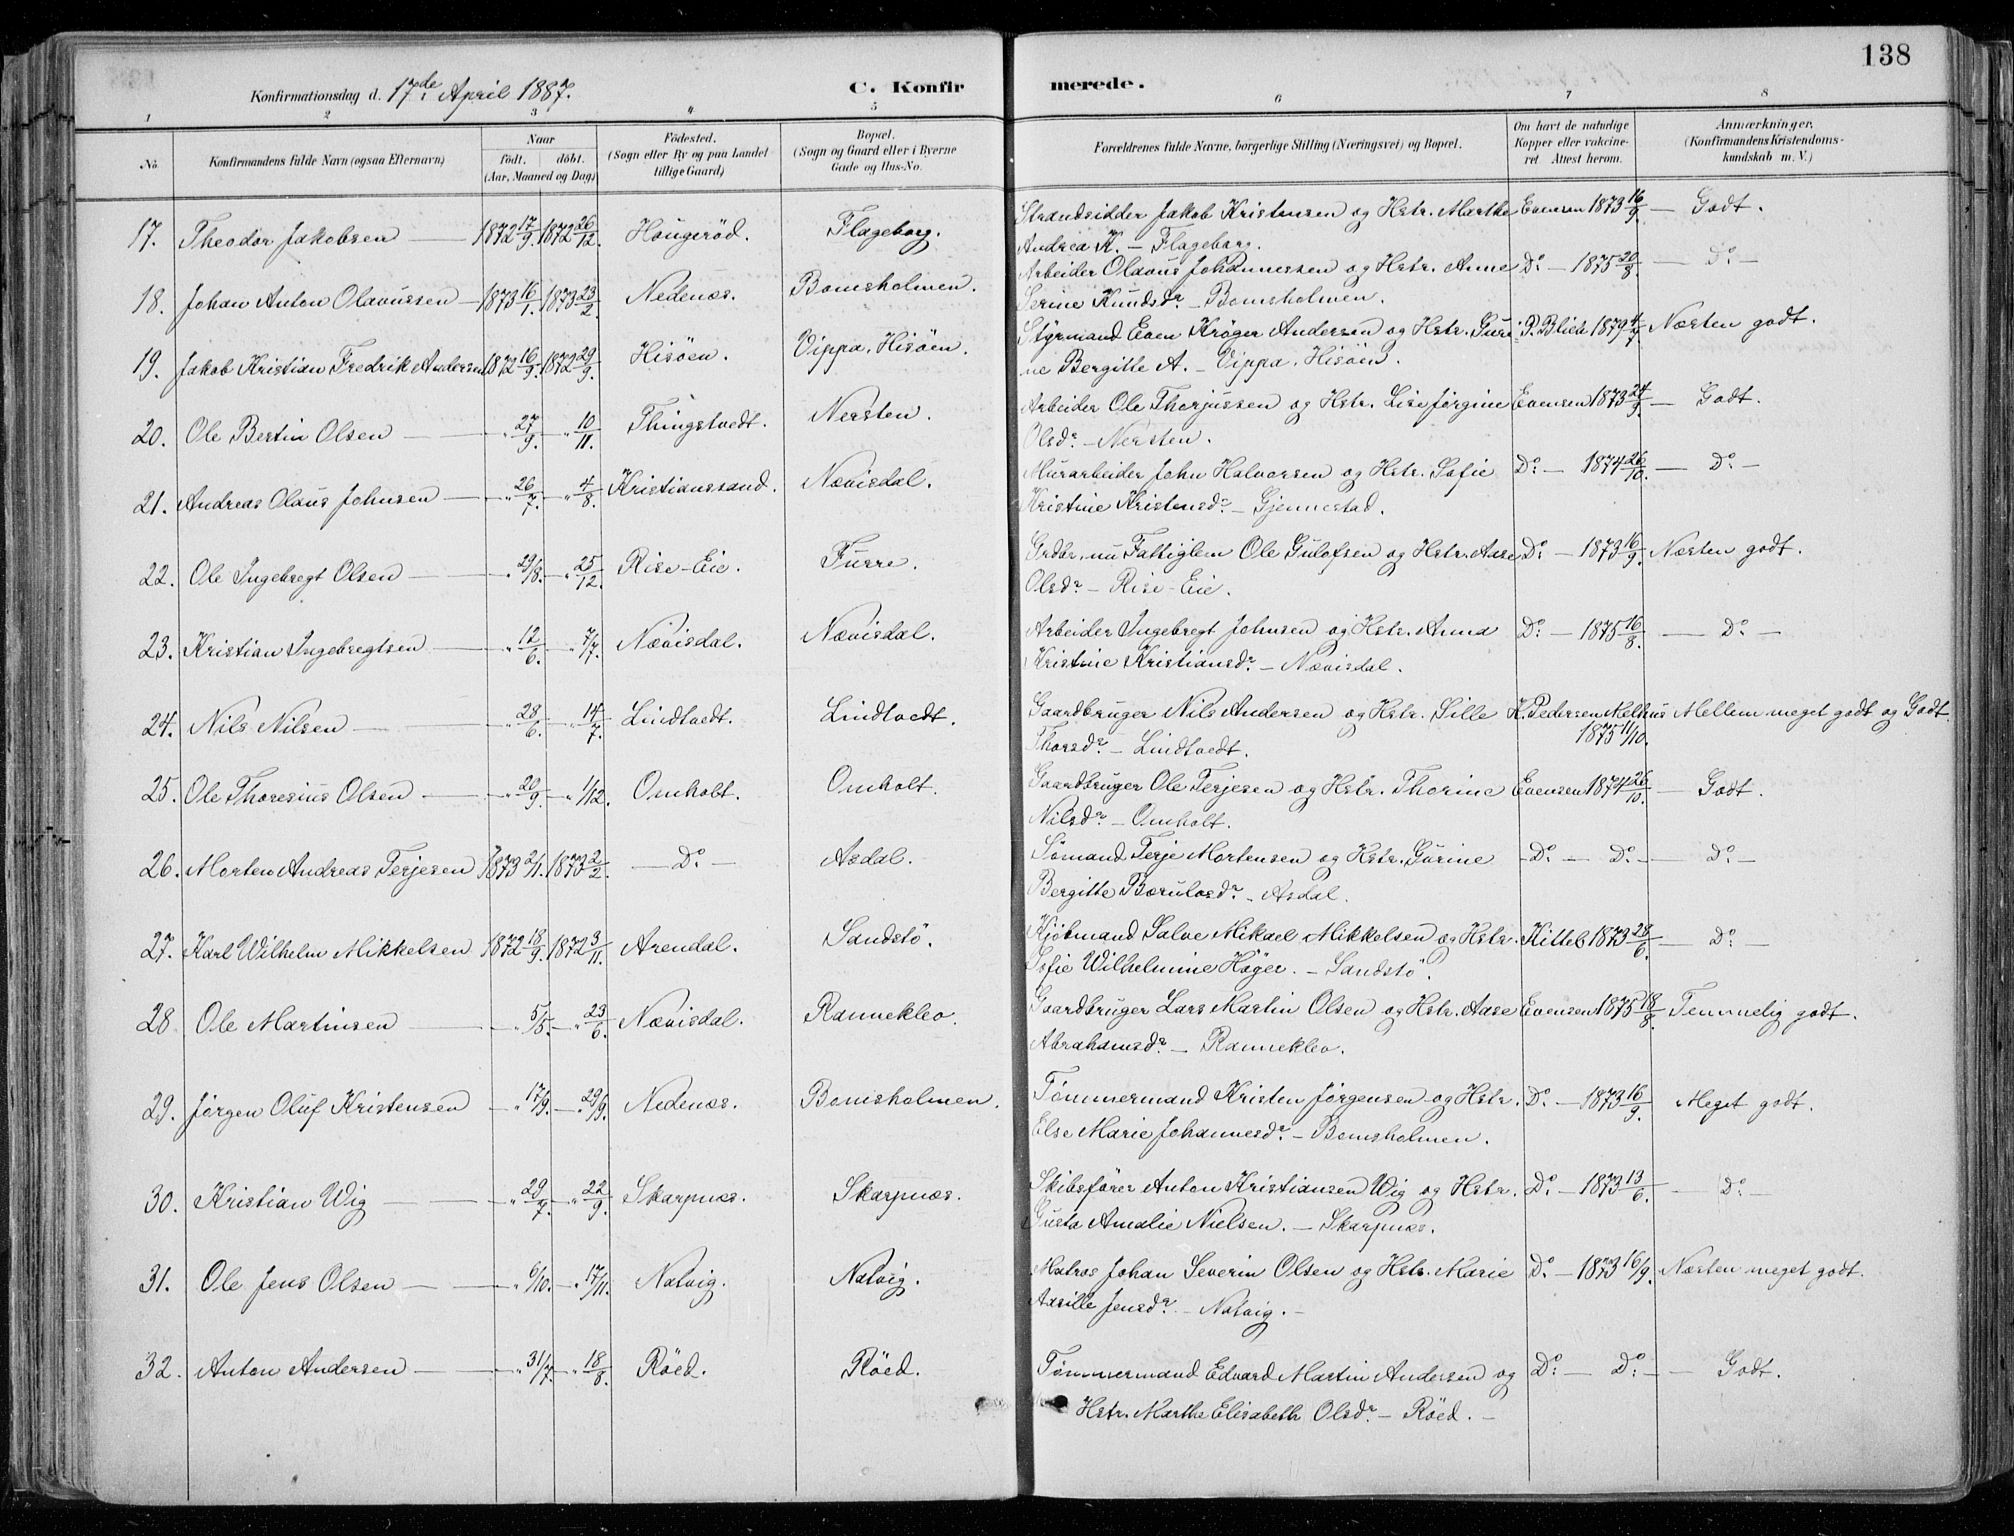 138
Konfirmationsdag d. 17de April 1887. C. Konfirmerede.
1 2 3 4 5 6 7 8
No. Konfirmandens fulde Navn (ogsaa Efternavn) Naar født. døbt. (Aar, Maaned og Dag) Fødested. (Sogn eller By og paa Landet tillige Gaard) Bopæl. (Sogn og Gaard eller i Byerne Gade og Hus-No. Forældrenes fulde Navne, borgerlige Stilling (Næringsvei) og Bopæl. Om havt de naturlige Kopper eller vakcineret. Attest herom. Anmærkninger. (Konfirmandens Kristendomskundskab m. V.)
17. Theodor Jakobsen — 1872 17/9. 1872 26/12. Hougerød. Flageborg. Strandsidder Jakob Kristensen og Hstr. Marthe Evensen 1873 16/9. — Godt.
Andrea K. — Flageborg.
18. Johan Anton Olavussen — 1873 16/1. 1873 23/2. Nedenæs. Bomsholmen. Arbeider Olavus Johannessen og Hstr. Anne Do. — 1875 20/8. — Do —
Serine Knudsdr — Bomsholmen.
19. Jakob Kristian Fredrik Andersen 1872 16/9. 1872 29/9. Hisöen. Vippa, Hisöen. Styrmand Even Krøger Andersen og Hstr. Guri P. Blich 1879 4/7 Næsten godt.
ne Bergitte A. — Vippa, Hisöen.
20. Ole Bertin Olsen — " 27/9. — " 10/11. Thingstvedt. Nersten. Arbeider Ole Thorjussen og Hstr. Lise Jørgine Evensen 1873 24/9. — Godt.
Olsdr — Nersten.
21. Andreas Olaus Johnsen — " 26/7. — " 4/8. Kristianssand. Nævisdal. Murarbeider John Halvorsen og Hstr. Sofie Do. — 1874 26/10. — Do. —
Kristine Kristensdr — Gjennestad.
22. Ole Ingebregt Olsen — " 29/8. — " 25/12. Rise-Eie. Furre. Grdbr. nu Fattiglem Ole Gulofsen og Hstr. Aase Do. — 1873 16/9. Næsten godt.
Olsdr — Rise-Eie.
23. Kristian Ingebregtsen — " 12/6. — " 7/7. Nævisdal. Nævisdal. Arbeider Ingebregt Johnsen og Hstr. Anna Do. — 1875 16/8. — Do. —
Kristine Kristiansdr. — Nævisdal.
24. Nils Nilsen — " 28/6. — " 14/7. Lindtvedt. Lindtvedt. Gaardbruger Nils Andersen og Hstr. Sille K. Pedersen Melhus Mellem meget godt og Godt.
Thorsdr. — Lindtvedt. 1875 11/10.
25. Ole Thoresius Olsen — " 20/9. — " 1/12. Omholt. Omholt. Gaardbruger Ole Terjesen og Hstr. Thorine Evensen 1874 26/10. — Godt.
Nilsdr. — Omholt.
26. Morten Andreas Terjesen 1873 2/1. 1873 2/2. — Do. — Asdal. Sømand Terje Mortensen og Hstr. Gurine — Do. — Do. — Do. —
Bergitte Bærulvsdr. — Asdal.
27. Karl Wilhelm Mikkelsen 1872 18/9. 1872 3/11. Arendal. Sandstö. Kjøbmand Salve Mikael Mikkelsen og Hstr. Kittel 1873 28/6. — Do. —
Sofie Wilhelmine Høger. — Sandstö.
28 Ole Martinsen — " 5/5. — " 23/6. Nævisdal. Rannekleo. Gaardbruger Lars Martin Olsen og Hstr. Aase Evensen 1875 18/8. Temmelig godt.
Abrahamsdr. — Rannekleo.
29. Jørgen Oluf Kristensen — " 17/9. — " 29/9. Nedenæs. Bomsholmen. Tømmermand Kristen Jørgensen og Hstr. Do. — 1873 16/9. Meget godt.
Else Marie Johannesdr. — Bomsholmen.
30. Kristian Wig — " 29/7. — " 22/9. Skarpnæs. Skarpnæs. Skibsfører Anton Kristiansen Wig og Hstr. Do. — 1873 13/6. — Do. —
Gusta Amalie Nielsen. — Skarpnæs.
31. Ole Jens Olsen — " 6/10. — " 17/11. Natvig. Natvig. Matros Johan Severin Olsen og Hstr. Marie Do. — 1873 16/9. Næsten meget godt.
Axsille Jensdr. — Natvig. —
32. Anton Andersen — " 31/7. — " 18/8. Röed. Röed. Tømmermand Edvard Martin Andersen og Do. — Do. — Godt.
Hstr. Marthe Elisabeth Olsdr. — Röed. —